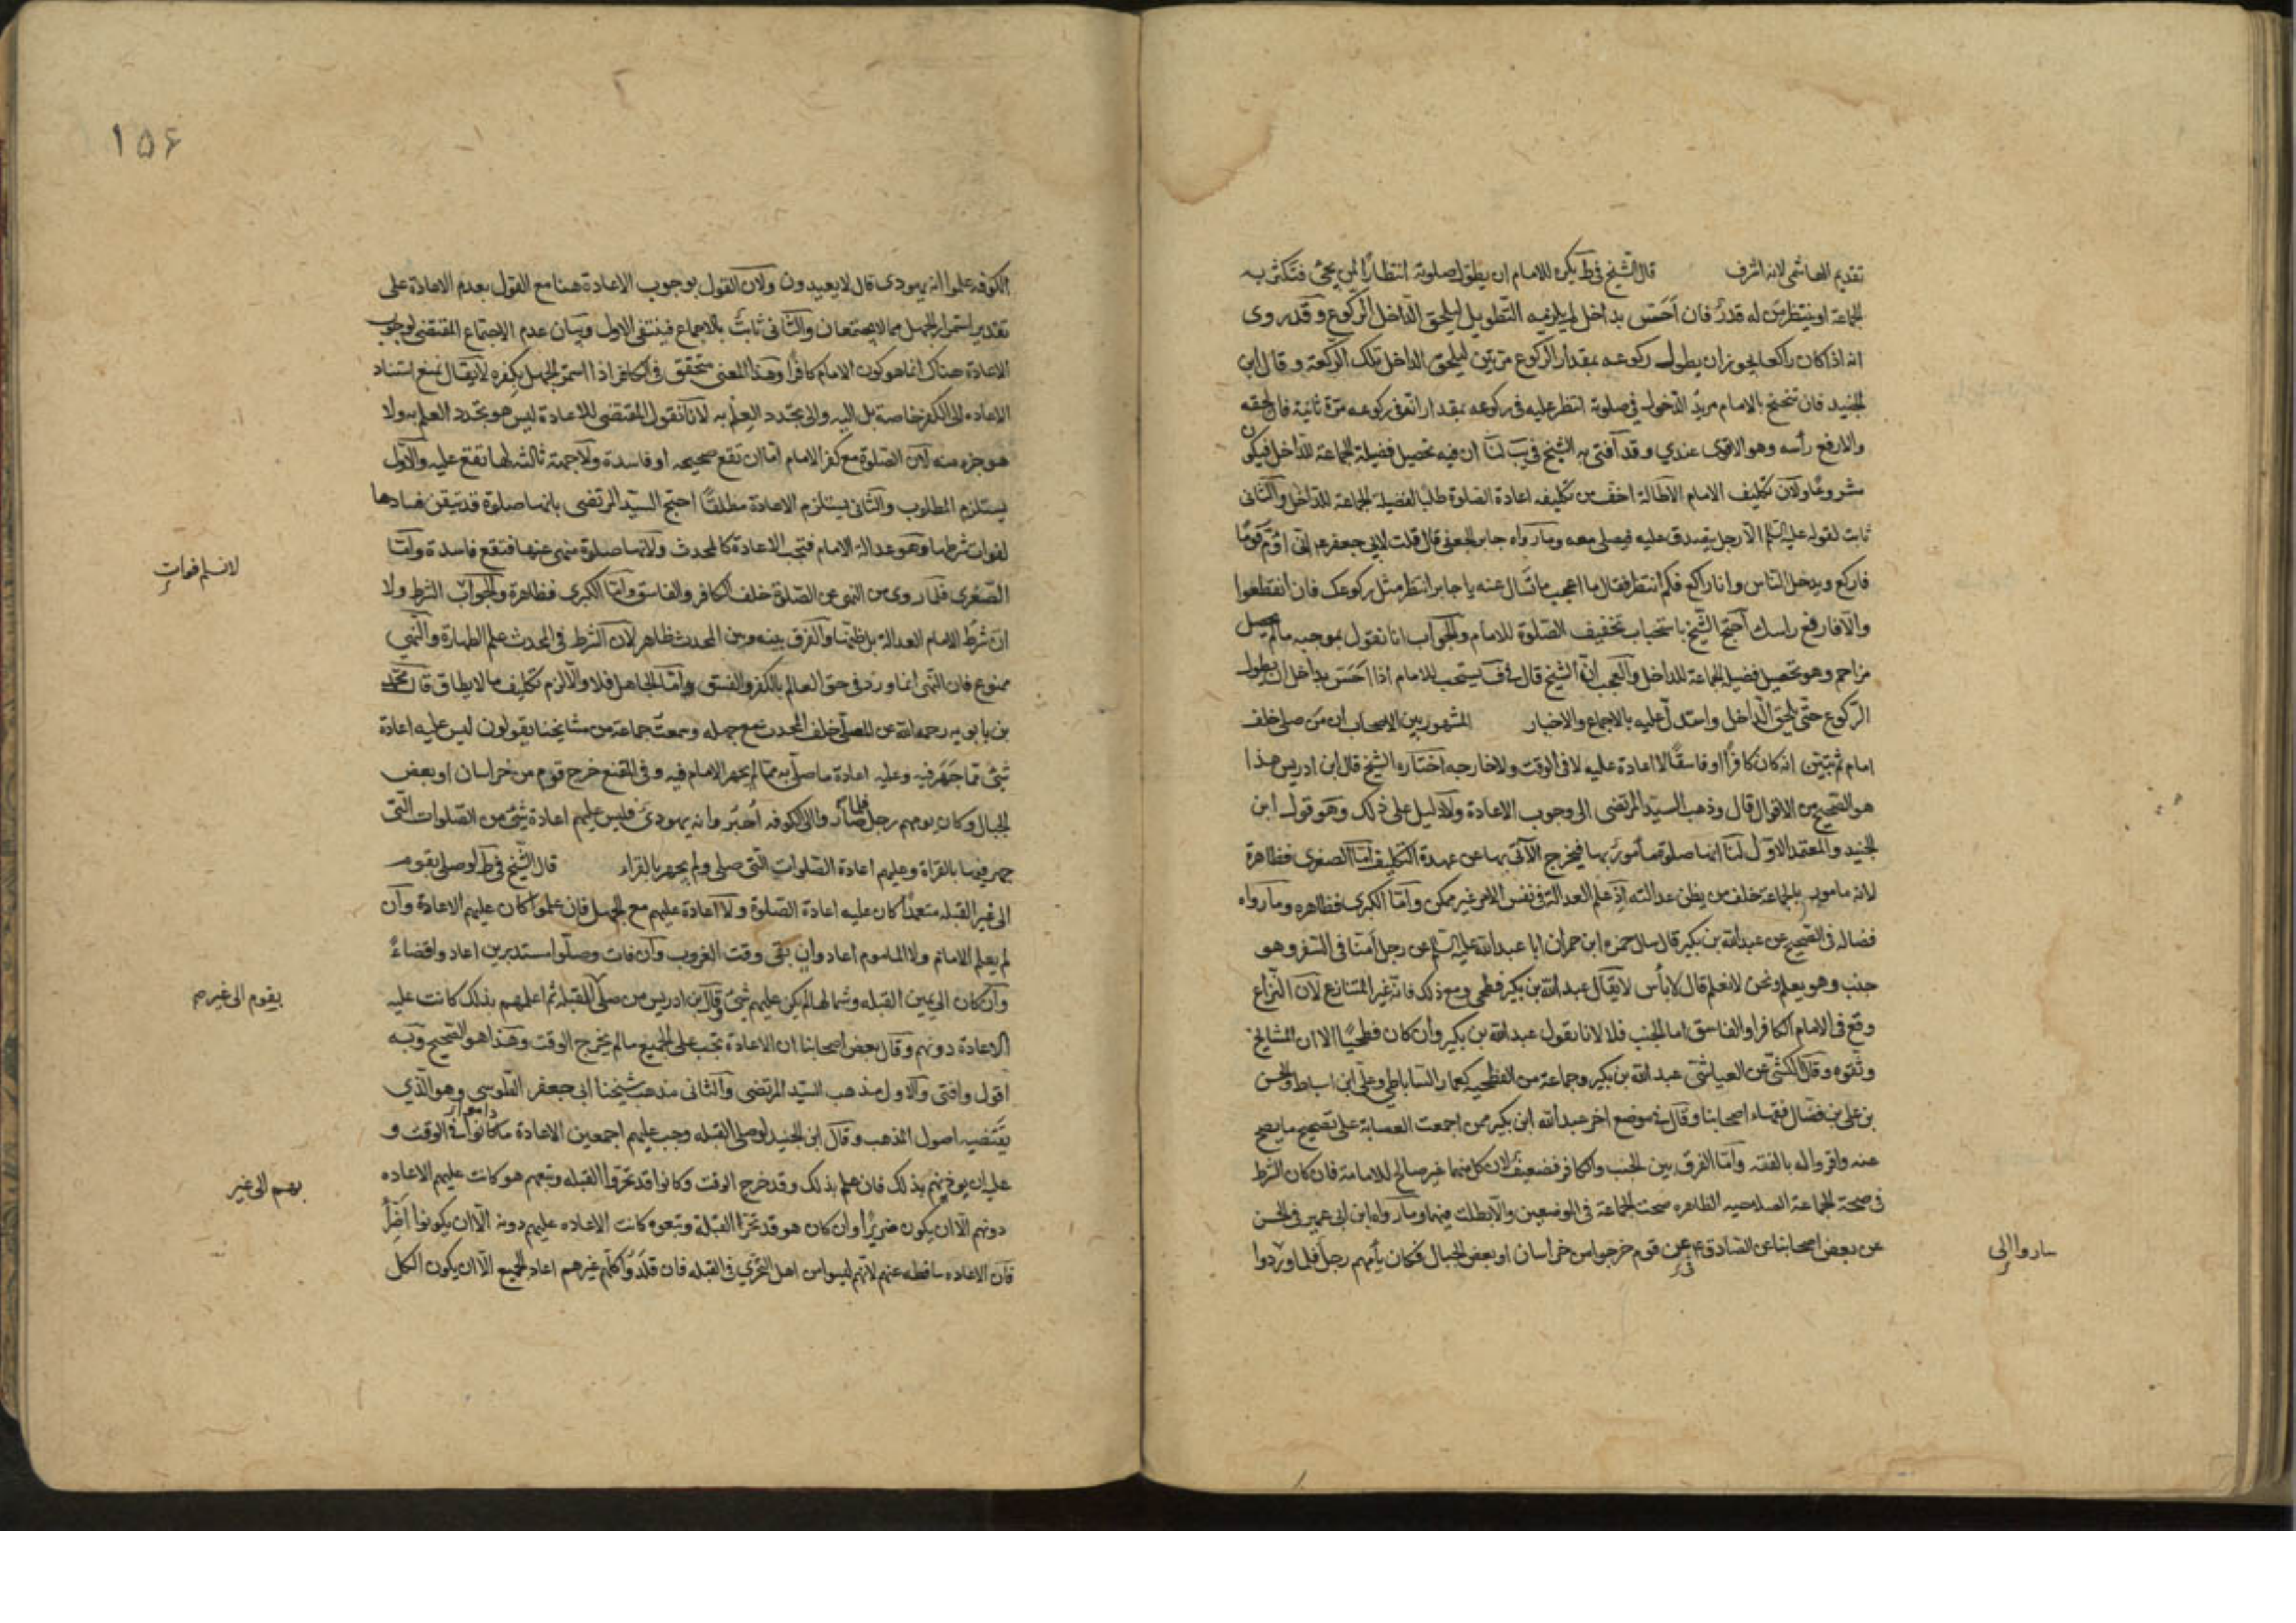 تقديم الهاشمى لانه اشرف قال الشيخ فى ط يكره للامام ان يطول صلوته انتظارًا لمن يجئ فتكثر به
الجماعة او ينتظر من له قدرٌ فان اَحَسّ بداخل لم يلزمه التطويل ليلحق الداخل الركوع وقد روى
انه اذا كان راكعا يجوز ان يطول ركوعه بمقدار الركوع مرتين ليلحق الداخل تلك الركعة وقال ابن
الجنيد فان تنحنح بالامام مريد الدخول فى صلوته انتظر عليه فى ركوعه بمقدار اتمّ فى ركوعه مرة ثانية فان لحقه
والا رفع رأسه وهو الاقوى عندي وقد افتى به الشيخ فى يب لنا ان فيه تحصيل فضيلة الجماعة للداخل فيكون
مشروعًا ولان تكليف الامام الاطالة اخف من تكليفه اعادة الصلوة طلبًا لفضيلة الجماعة للداخل والثانى
ثابت لقوله عليه السلم الا رجل يصدق عليه فيصلى معه وما رواه جابر الجعفى قال قلت لابى جعفر ع انى اؤم قومًا
فاركع ويدخل الناس وانا راكع فكم انتظر فقال ما اعجب ما تسال عنه يا جابر انتظر مثل ركوعك فان انقطعوا
والا فارفع راسك احتج الشيخ باستحباب تخفيف الصلوة للامام والجواب انا نقول بموجبه ما لم يحصل
مزاحم وهو تحصيل فضيلة الجماعة للداخل والعجب ان الشيخ قال فى ف يستحب للامام اذا اَحَسّ بداخل ان يطول
الركوع حتى يلحق الداخل واستدل عليه بالاجماع والاخبار المشهور بين الاصحاب ان من صلى خلف
امام ثم تبين انه كان كافرًا او فاسقًا لا اعادة عليه لا فى الوقت ولا خارجه اختاره الشيخ قال ابن ادريس هذا
هو الصحيح من الاقوال قال وذهب السيد المرتضى الى وجوب الاعادة ولا دليل على ذلك وهو قول ابن
الجنيد والمعتمد الاول لنا انها صلوة مأمورٌ بها فيخرج الآتى بها عن عهدة التكليف اما الصغرى فظاهرة
لانه مامور بالجماعة خلف من يظن عدالته اذ علم العدالة فى نفس الامر غير ممكن واما الكبرى فظاهره وما رواه
فضاله فى الصحيح عن عبدالله بن بكير قال سال حمزه ابن حمران ابا عبدالله عليه السلم عن رجل اَمّنا فى السفر وهو
جنب وهو يعلم ونحن لا نعلم قال لا بأس لا يقال عبدالله بن بكير فطحى ومع ذلك فانه غير المتنازع لان النزاع
وقع فى الامام الكافر او الفاسق اما الجنب فلا لانا نقول عبدالله بن بكير وان كان فطحيًا الا ان المشايخ
وثقوه وقال الكشى عن العياشى عبدالله بن بكير وجماعة من الفطحيه كعمار الساباطى وعلى ابن اسباط والحسن
بن على بن فضال فقهاء اصحابنا وقال فى موضع اخر عبدالله ابن بكير ممن اجمعت العصابة على تصحيح ما يصح
عنه واقروا له بالفقه واما الفرق بين الجنب والكافر فضعيف لان كلا منهما غير صالح للامامة فان كان الشرط
فى صحة الجماعة الصلاحيه الظاهره صحت الجماعة فى الموضعين والا بطلت فيهما وما رواه ابن ابى عمير فى الحسن
عن بعض اصحابنا عن الصادق ع فى قوم خرجوا من خراسان او بعض الجبال فكان يأمهم رجل فلما وردوا
ساروا الى
۱۵۶
الكوفه علموا انه يهودى قال لا يعيدون ولان القول بوجوب الاعادة هنا مع القول بعدم الاعادة على
تقدير استمرار الجهل مما لا يجتمعان والثانى ثابتٌ بالاجماع فينتفى الاول وبيان عدم الاجتماع المقتضى لوجوب
الاعادة هناك انما هو كون الامام كافرًا وهذا المعنى متحقق فى الكافر اذا استمر الجهل بكفره لا يقال نمنع استناد
الاعاده الى الكفر خاصة بل اليه والى تجدد العلم به لانا نقول المقتضى للاعادة ليس هو تجدد العلم به ولا
هو جزء منه لان الصلوة مع كفر الامام اما ان تقع صحيحه او فاسدة ولا جهة ثالثه لها تقع عليه والاول
يستلزم المطلوب والثانى يستلزم الاعادة مطلقًا احتج السيد المرتضى بانها صلوة قد تيقن فسادها
لفوات شرطها وهو عدالة الامام فتجب الاعادة كالمحدث ولانها صلوة منهى عنها فتقع فاسدة واما
الصغرى فلما روى من النهى عن الصلوة خلف الكافر والفاسق واما الكبرى فظاهرة والجواب الشرط ولا
لا نسلم فوات
ان شرط الامام العدالة بل ظنها والفرق بينه وبين المحدث ظاهر لان الشرط فى المحدث علم الطهارة والنهي
ممنوع فان النهى انما ورد فى حق العالم بالكفر والفسق واما الجاهل فلا والا لزم تكليف ما لا يطاق قال محمد
بن بابويه رحمه الله عن المصلى خلف المحدث مع جهله وسمعتُ جماعة من مشايخنا يقولون ليس عليه اعادة
شئ مما جَهَر فيه وعليه اعادة ما صلى به مما لم يجهر الامام فيه وفى المقنع خرج قوم من خراسان او بعض
الجبال وكان يومهم رجل فلما صاروا الى الكوفه اُخبروا انه يهودىٌ فليس عليهم اعادة شئ من الصلوات التى
جهر فيها بالقراة وعليهم اعادة الصلوات التى صلى ولم يجهر بالقراء قال الشيخ فى ط لو صلى بقوم
الى غير القبله متعمدًا كان عليه اعادة الصلوة ولا اعادة عليهم مع الجهل فان علموا كان عليهم الاعادة وان
لم يعلم الامام ولا الماموم اعادوا ان بقى وقت الغروب وان فات وصلوا مستدبرين اعادوا قضاءً
وان كان الى يمين القبله وشمالها لم يكن عليهم شئ قال ابن ادريس من صلى للقبله ثم اعلمهم بذلك كانت عليه
بقوم الى غير صح
الاعادة دونهم وقال بعض اصحابنا ان الاعادة تجب على الجميع ما لم يخرج الوقت وهذا هو الصحيح وبه
اقول وافتى والاول مذهب السيد المرتضى والثانى مذهب شيخنا ابى جعفر الطوسى وهو الذي
يقتضيه اصول المذهب وقال ابن الجنيد لو صلى القبله وجب عليهم اجمعين الاعادة ما كانوا فى الوقت و
بهم الى غير
عليه ان يوذنهم بذلك فان علم بذلك وقد خرج الوقت وكانوا قد تحروا القبله وتبعهم هو كانت عليهم الاعاده
دونهم الا ان يكون ضريرًا وان كان هو قد تحرا القبلة وتبعوه كانت الاعاده عليهم دونه الا ان يكونوا اَضِرّاً
فان الاعاده ساقطه عنهم لانهم ليسوا من اهل التحرّي فى القبله فان قلدوا كلهم غيرهم اعاد الجميع الا ان يكون الكل